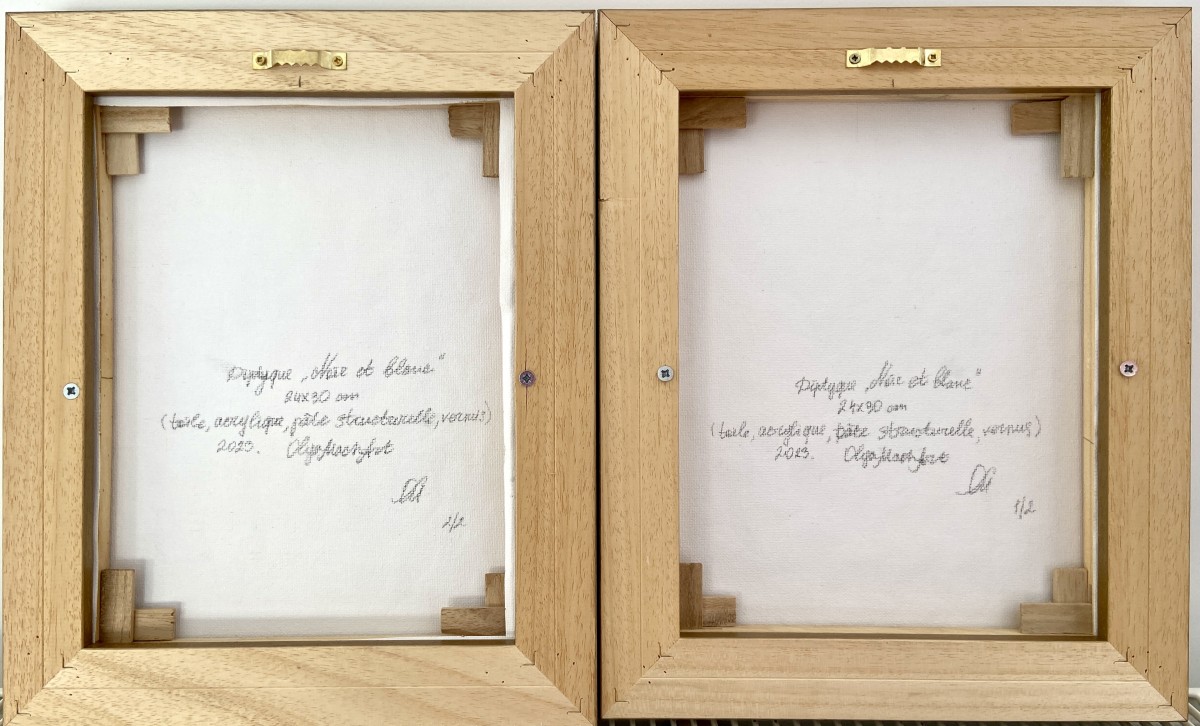 Diptyque „Noir et blanc“
24x30 cm
(toile, acrylique, pâte structurelle, vernis)
2023. OlgaMachArt
2/2
Diptyque „Noir et blanc“
24x30 cm
(toile, acrylique, pâte structurelle, vernis)
2023. OlgaMachArt
1/2